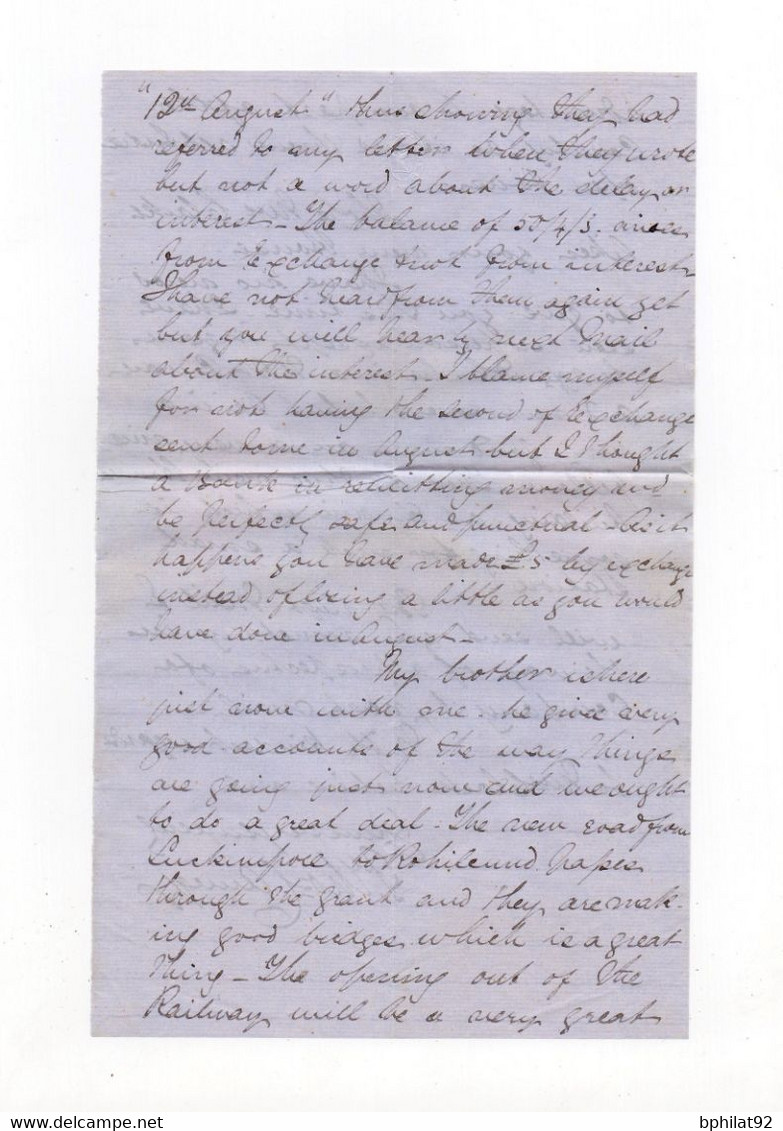 "12th August" thus showing they had
referred to my letter when they wrote
but not a word about the delay or
interest - The balance of 50/4/3. arises
from Exchange & not from interest -
I have not heard from them again yet
but you will hear by next mail
about the interest - I blame myself
for not having the second of Exchange
sent home in August but I thought
a Bank in remitting money wd
be perfectly safe and punctual - As it
happens you have made £5 by exchange
instead of losing a little as you would
have done in August -
My brother is here
just now with me. he gives very
good accounts of the way things
are going just now and we ought
to do a great deal - The new road from
Luckimpore to Rohilcund passes
through the grant and they are mak-
ing good bridges which is a great
thing - The opening out of the
Railway will be a very great
bphilat92